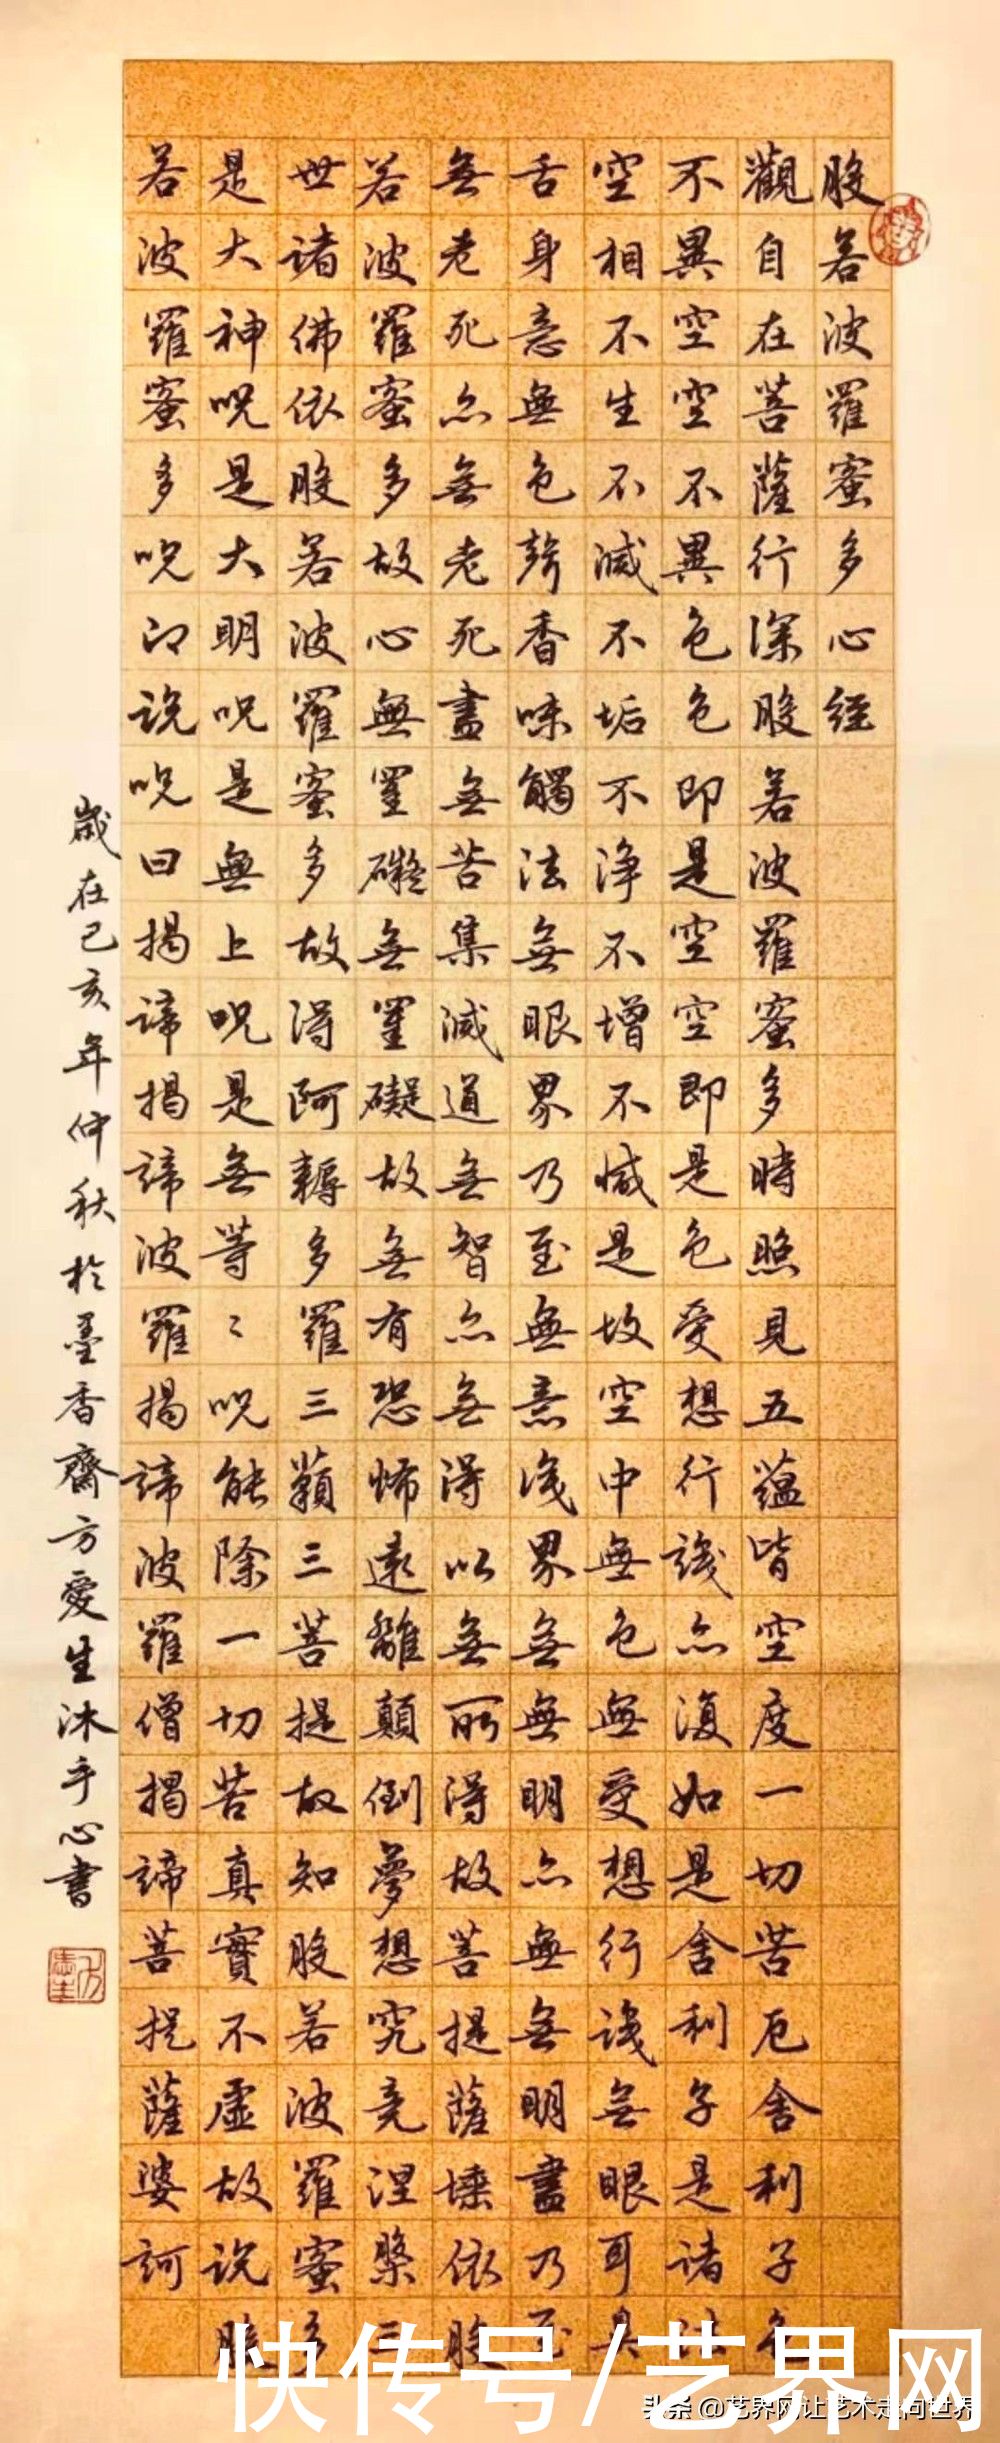 般若波羅蜜多心経
觀自在菩薩行深般若波羅蜜多時照見五蘊皆空度一切苦厄舍利子色
不異空空不異色色即是空空即是色受想行識亦復如是舍利子是諸法
空相不生不滅不垢不淨不增不減是故空中無色無受想行識無眼耳鼻
舌身意無色聲香味觸法無眼界乃至無意識界無無明亦無無明盡乃至
無老死亦無老死盡無苦集滅道無智亦無得以無所得故菩提薩埵依般
若波羅蜜多故心無罣礙無罣礙故無有恐怖遠離顛倒夢想究竟涅槃三
世諸佛依般若波羅蜜多故得阿耨多羅三藐三菩提故知般若波羅蜜多
是大神咒是大明咒是無上咒是無等〻咒能除一切苦真實不虛故說般
若波羅蜜多咒即說咒曰揭諦揭諦波羅揭諦波羅僧揭諦菩提薩婆訶
歲在己亥年仲秋於墨香齋方愛生沐手心書
快传号/艺界网
头条 @艺界网让艺术走向世界